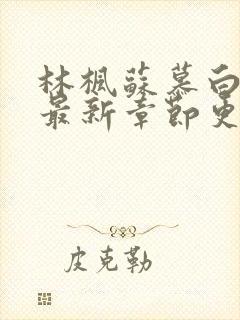 林楓蘇慕白
最新章節更
皮克勒